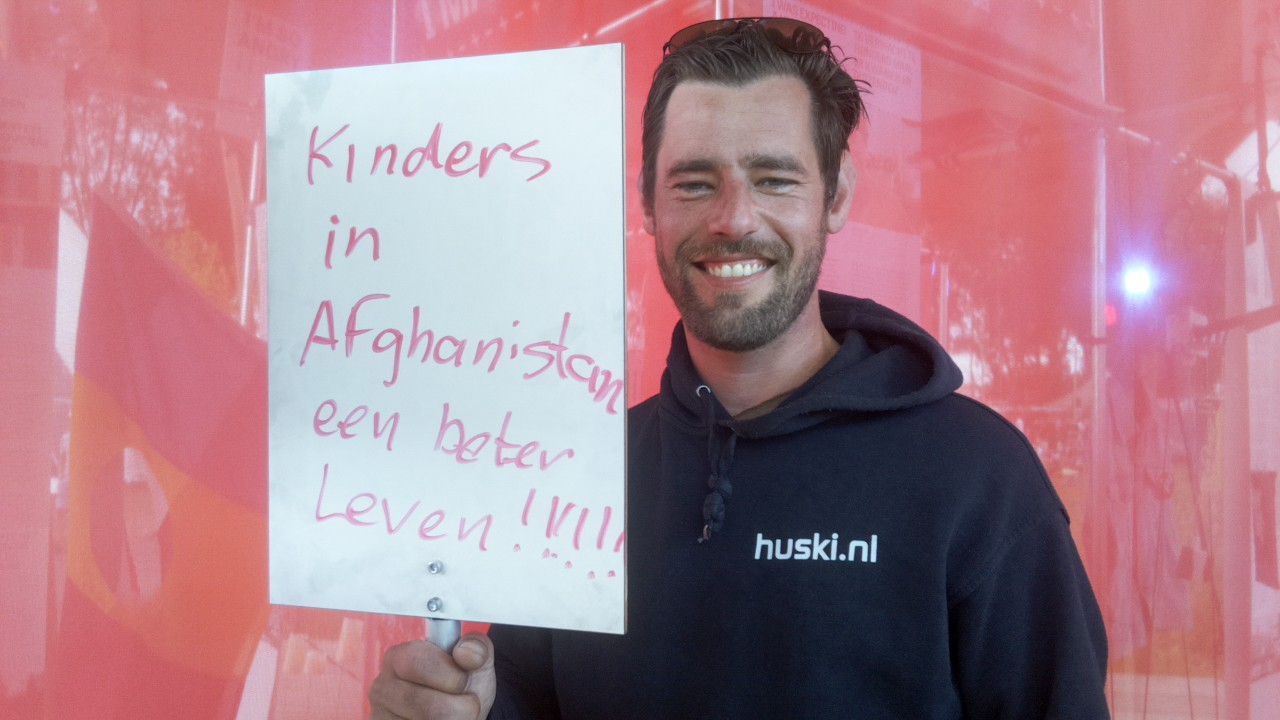 Kinders
in
Afghanistan
een beter
Leven!!!!!
huski.nl